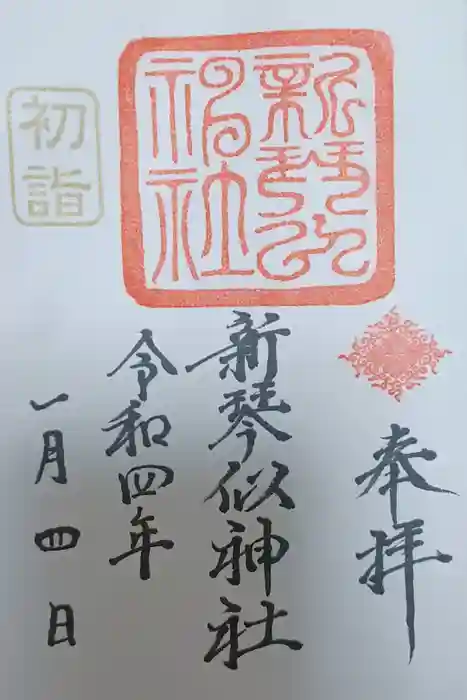 奉拝
新琴似神社
令和四年
一月四日
初詣
新琴似
神社